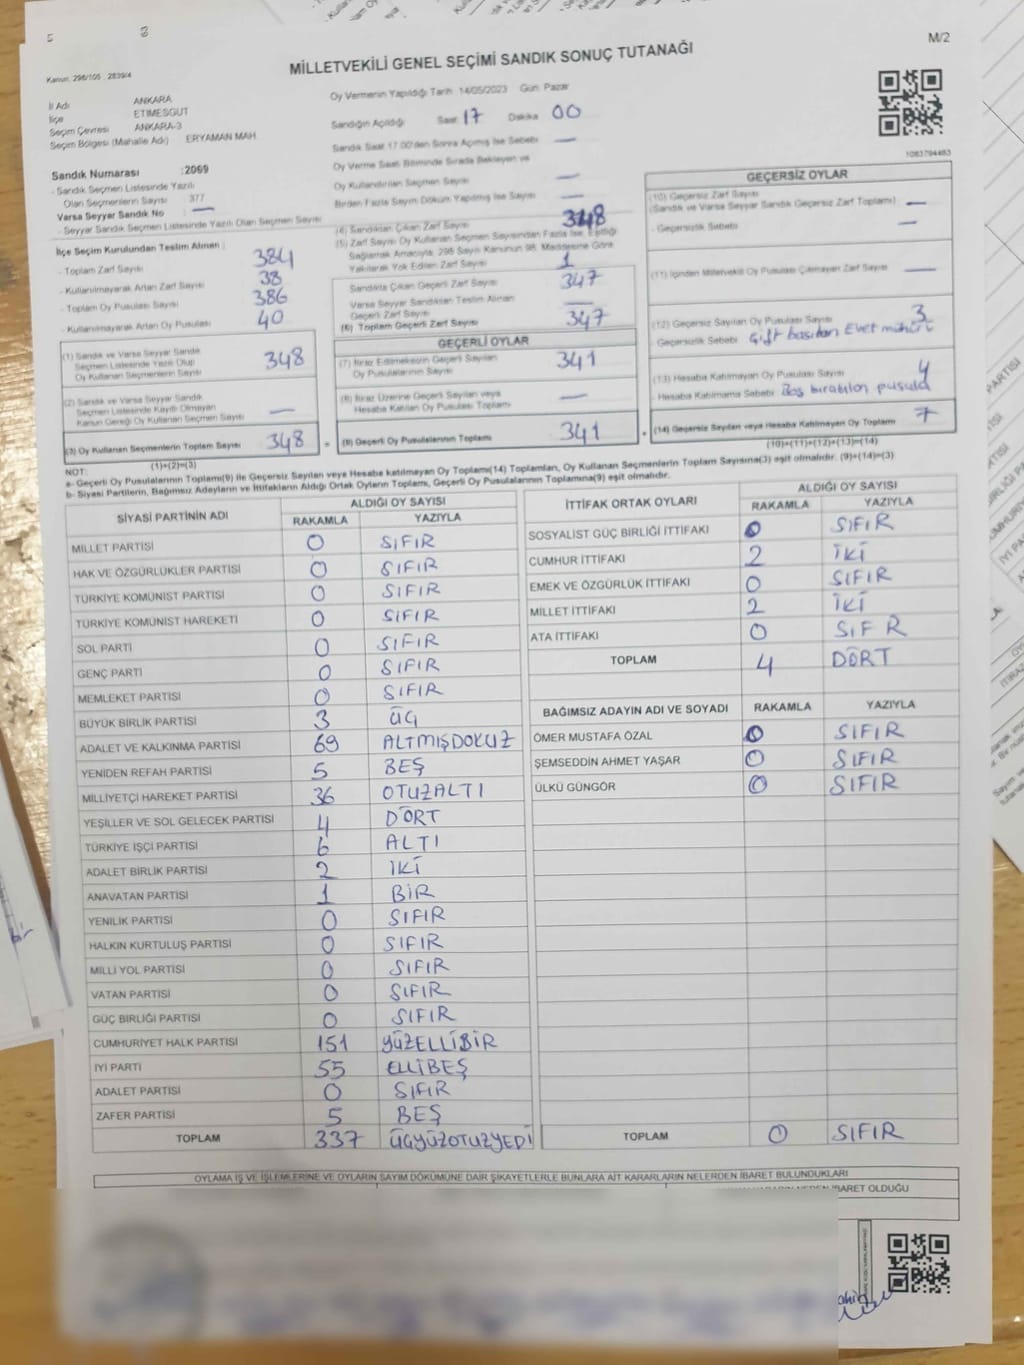 M/2
MİLLETVEKİLİ GENEL SEÇİMİ SANDIK SONUÇ TUTANAĞI
Kanun: 298/105 2839/4
İl Adı ANKARA
İlçe ETİMESGUT
Seçim Çevresi ANKARA-3
Seçim Bölgesi (Mahalle Adı) ERYAMAN MAH.
Sandık Numarası :2069
- Sandık Seçmen Listesinde Yazılı
Olan Seçmenlerin Sayısı 377
Varsa Seyyar Sandık No —
- Seyyar Seçmen Listesinde Yazılı Olan Seçmen Sayısı
İlçe Seçim Kurulundan Teslim Alınan :
- Toplam Zarf Sayısı 384
- Kullanılmayarak Artan Zarf Sayısı 38
- Toplam Oy Pusulası Sayısı 386
- Kullanılmayarak Artan Oy Pusulası 40
(1) Sandık ve Varsa Seyyar Sandık
Seçmen Listesinde Yazılı Olup
Oy Kullanan Seçmenlerin Sayısı 348
(2) Sandık ve Varsa Seyyar Sandık
Seçmen Listesinde Kayıtlı Olmayan
Kanun Gereği Oy Kullanan Seçmen Sayısı —
(3) Oy Kullanan Seçmenlerin Toplam Sayısı 348
(1)+(2)=(3)
Oy Vermenin Yapıldığı Tarih 14/05/2023 Gün: Pazar
Sandığın Açıldığı Saat 17 Dakika 00
Sandık Saat 17.00'den Sonra Açılmış İse Sebebi —
Oy Verme Saati Bitiminde Sırada Bekleyen ve
Oy Kullandırılan Seçmen Sayısı —
Birden Fazla Sayım Döküm Yapılmış İse Sayısı —
(4) Sandıktan Çıkan Zarf Sayısı 348
(5) Zarf Sayısı Oy Kullanan Seçmen Sayısından Fazla İse, Eşitliği
Sağlamak Amacıyla, 298 Sayılı Kanunun 98. Maddesine Göre
Yakılarak Yok Edilen Zarf Sayısı 1
Sandıkta Çıkan Geçerli Zarf Sayısı 347
Varsa Seyyar Sandıktan Teslim Alınan
Geçerli Zarf Sayısı —
(6) Toplam Geçerli Zarf Sayısı 347
GEÇERLİ OYLAR
(7) İtiraz Edilmeksizin Geçerli Sayılan
Oy Pusulalarının Sayısı 341
(8) İtiraz Üzerine Geçerli Sayılan veya
Hesaba Katılan Oy Pusulası Toplamı —
= (9) Geçerli Oy Pusulalarının Toplamı 341
1083794483
GEÇERSİZ OYLAR
(10) Geçersiz Zarf Sayısı
(Sandık ve Varsa Seyyar Sandık Geçersiz Zarf Toplamı) —
- Geçersizlik Sebebi —
(11) İçinden Milletvekili Oy Pusulası Çıkmayan Zarf Sayısı —
(12) Geçersiz Sayılan Oy Pusulası Sayısı 3
Geçersizlik Sebebi Çift basılan Evet mührü
(13) Hesaba Katılmayan Oy Pusulası Sayısı 4
- Hesaba Katılmama Sebebi Boş bırakılan pusula
+ (14) Geçersiz Sayılan veya Hesaba Katılmayan Oy Toplamı 7
(10)+(11)+(12)+(13)=(14)
NOT:
a- Geçerli Oy Pusulalarının Toplamı(9) ile Geçersiz Sayılan veya Hesaba katılmayan Oy Toplamı(14) Toplamları, Oy Kullanan Seçmenlerin Toplam Sayısına(3) eşit olmalıdır. (9)+(14)=(3)
b- Siyasi Partilerin, Bağımsız Adayların ve İttifakların Aldığı Ortak Oyların Toplamı, Geçerli Oy Pusulalarının Toplamına(9) eşit olmalıdır.
SİYASİ PARTİNİN ADI ALDIĞI OY SAYISI
RAKAMLA YAZIYLA
MİLLET PARTİSİ 0 SIFIR
HAK VE ÖZGÜRLÜKLER PARTİSİ 0 SIFIR
TÜRKİYE KOMÜNİST PARTİSİ 0 SIFIR
TÜRKİYE KOMÜNİST HAREKETİ 0 SIFIR
SOL PARTİ 0 SIFIR
GENÇ PARTİ 0 SIFIR
MEMLEKET PARTİSİ 0 SIFIR
BÜYÜK BİRLİK PARTİSİ 3 ÜÇ
ADALET VE KALKINMA PARTİSİ 69 ALTMIŞDOKUZ
YENİDEN REFAH PARTİSİ 5 BEŞ
MİLLİYETÇİ HAREKET PARTİSİ 36 OTUZALTI
YEŞİLLER VE SOL GELECEK PARTİSİ 4 DÖRT
TÜRKİYE İŞÇİ PARTİSİ 6 ALTI
ADALET BİRLİK PARTİSİ 2 İKİ
ANAVATAN PARTİSİ 1 BİR
YENİLİK PARTİSİ 0 SIFIR
HALKIN KURTULUŞ PARTİSİ 0 SIFIR
MİLLİ YOL PARTİSİ 0 SIFIR
VATAN PARTİSİ 0 SIFIR
GÜÇ BİRLİĞİ PARTİSİ 0 SIFIR
CUMHURİYET HALK PARTİSİ 151 YÜZELLİBİR
İYİ PARTİ 55 ELLİBEŞ
ADALET PARTİSİ 0 SIFIR
ZAFER PARTİSİ 5 BEŞ
TOPLAM 337 ÜÇYÜZOTUZYEDİ
İTTİFAK ORTAK OYLARI ALDIĞI OY SAYISI
RAKAMLA YAZIYLA
SOSYALİST GÜÇ BİRLİĞİ İTTİFAKI 0 SIFIR
CUMHUR İTTİFAKI 2 İKİ
EMEK VE ÖZGÜRLÜK İTTİFAKI 0 SIFIR
MİLLET İTTİFAKI 2 İKİ
ATA İTTİFAKI 0 SIFR
TOPLAM 4 DÖRT
BAĞIMSIZ ADAYIN ADI VE SOYADI RAKAMLA YAZIYLA
ÖMER MUSTAFA ÖZAL 0 SIFIR
ŞEMSEDDİN AHMET YAŞAR 0 SIFIR
ÜLKÜ GÜNGÖR 0 SIFIR
TOPLAM 0 SIFIR
OYLAMA İŞ VE İŞLEMLERİNE VE OYLARIN SAYIM DÖKÜMÜNE DAİR ŞİKAYETLERLE BUNLARA AİT KARARLARIN NELERDEN İBARET BULUNDUKLARI
İBARET OLDUĞU